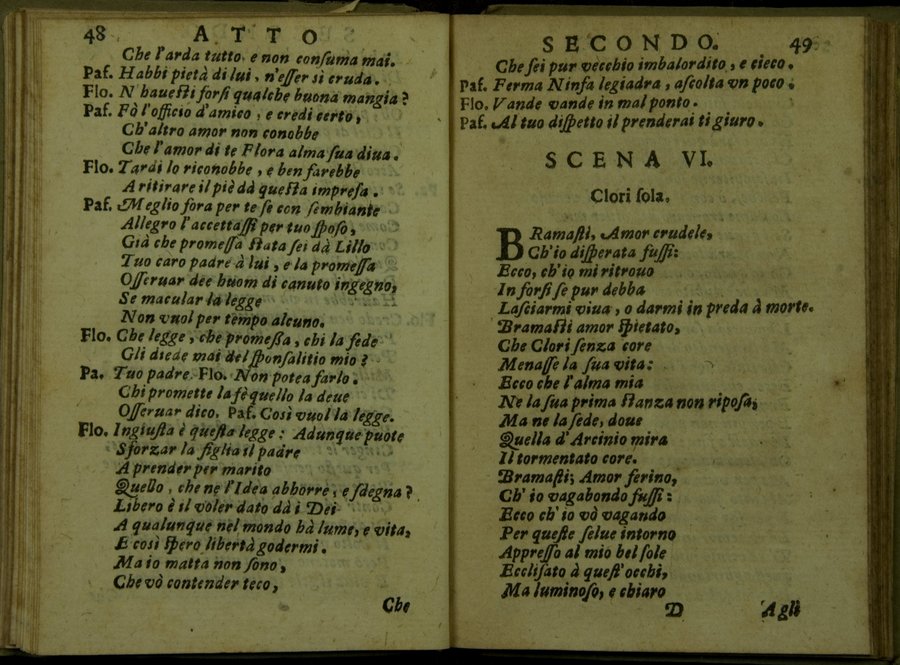 48 ATTO
Che l'arda tutto, e non conſuma mai.
Paſ. Habbi pietà di lui, n'eſſer sì cruda.
Flo. N'haueſti forſi qualche buona mangia?
Paſ. Fò l'officio d'amico, e credi certo,
Ch'altro amor non conobbe
Che l'amor di te Flora alma ſua diua.
Flo. Tardi lo riconobbe, e ben farebbe
A ritirare il piè dà queſta impreſa.
Paſ. Meglio fora per te ſe con ſembiante
Allegro l'accettaſſi per tuo ſpoſo,
Già che promeſſa ſtata ſei dà Lillo
Tuo caro padre à lui, e la promeſſa
Oſſeruar dee huom di canuto ingegno,
Se macular la legge
Non vuol per tempo alcuno.
Flo. Che legge, che promeßa, chi la fede
Gli diede mai del ſponſalitio mio?
Pa. Tuo padre. Flo. Non potea farlo.
Chi promette la fè quello la deue
Oſſeruar dico. Paſ. Così vuol la legge.
Flo. Ingiuſta è queſta legge: Adunque puote
Sforzar la figlia il padre
A prender per marito
Quello, che ne l'Idea abborre, e ſdegna?
Libero è il voler dato dà i Dei
A qualunque nel mondo hà lume, e vita,
E così ſpero libertà godermi.
Ma io matta non ſono,
Che vò contender teco,
Che
SECONDO. 49
Che ſei pur vecchio imbalordito, e cieco.
Paſ. Ferma Ninfa legiadra, aſcolta vn poco.
Flo. Vande vande in mal ponto.
Paſ. Al tuo diſpetto il prenderai ti giuro.
SCENA VI.
Clori ſola.
BRamaſti, Amor crudele,
Ch'io diſperata fuſſi:
Ecco, ch'io mi ritrouo
In forſi ſe pur debba
Laſciarmi viua, o darmi in preda à morte.
Bramaſti amor ſpietato,
Che Clori ſenza core
Menaſſe la ſua vita:
Ecco che l'alma mia
Ne la ſua prima ſtanza non ripoſa;
Ma ne la ſede, doue
Quella d'Arcinio mira
Il tormentato core.
Bramaſti; Amor ferino,
Ch'io vagabondo fuſſi:
Ecco ch'io vò vagando
Per queſte ſelue intorno
Appreſſo al mio bel ſole
Eccliſato à queſt'occhi,
Ma luminoſo, e chiaro
D Agli